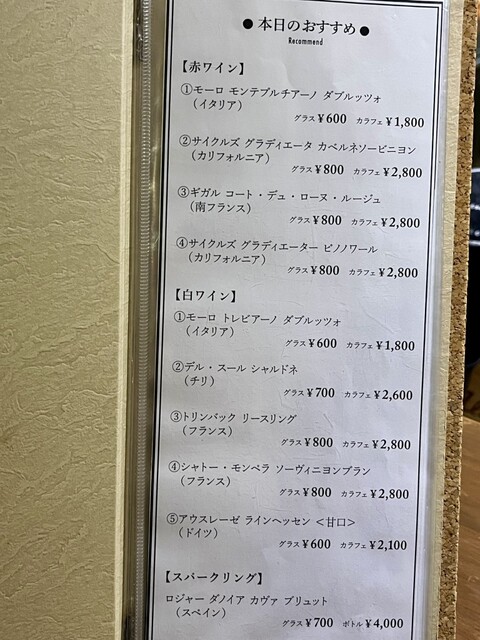 ● 本日のおすすめ ●
Recommend
【赤ワイン】
①モーロ モンテプルチアーノ ダブルッツォ
（イタリア）
グラス ¥600 カラフェ ¥1,800
②サイクルズ グラディエータ カベルネソービニヨン
（カリフォルニア）
グラス ¥800 カラフェ ¥2,800
③ギガル コート・デュ・ローヌ・ルージュ
（南フランス）
グラス ¥800 カラフェ ¥2,800
④サイクルズ グラディエーター ピノノワール
（カリフォルニア）
グラス ¥800 カラフェ ¥2,800
【白ワイン】
①モーロ トレビアーノ ダブルッツォ
（イタリア）
グラス ¥600 カラフェ ¥1,800
②デル・スール シャルドネ
（チリ）
グラス ¥700 カラフェ ¥2,600
③トリンバック リースリング
（フランス）
グラス ¥800 カラフェ ¥2,800
④シャトー・モンペラ ソーヴィニヨンブラン
（フランス）
グラス ¥800 カラフェ ¥2,800
⑤アウスレーゼ ラインヘッセン ＜甘口＞
（ドイツ）
グラス ¥600 カラフェ ¥2,100
【スパークリング】
ロジャー ダノイア カヴァ ブリュット
（スペイン）
グラス ¥700 ボトル ¥4,000